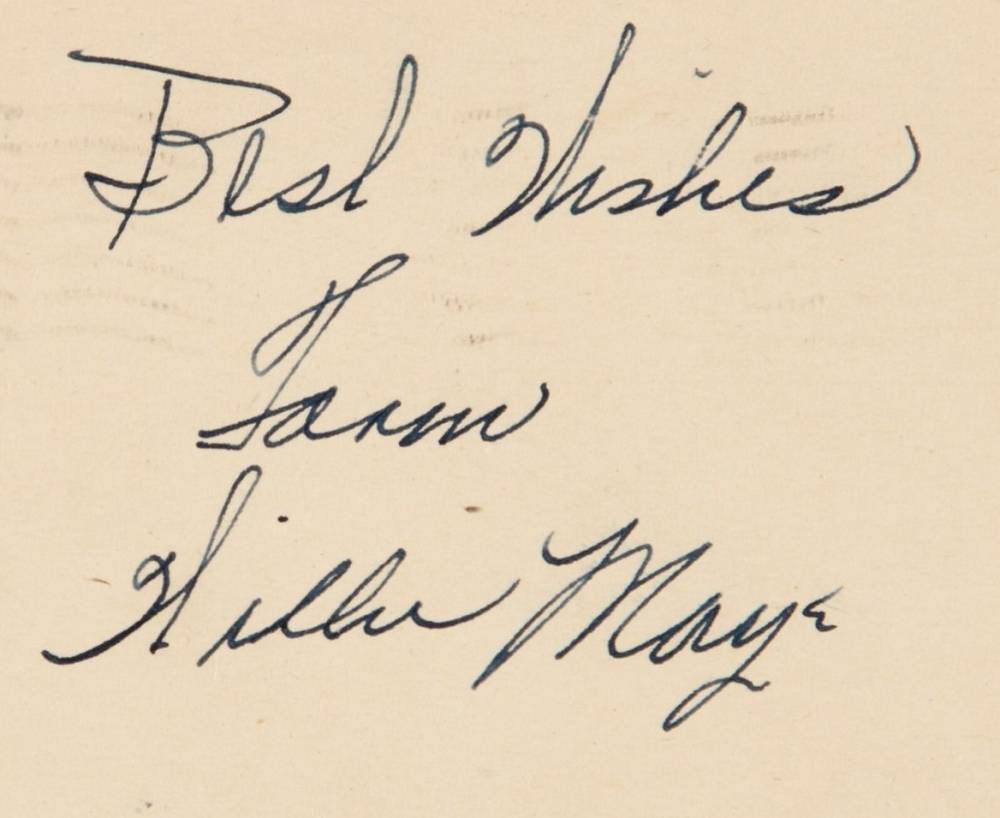 Best Wishes
From
Willie Mays